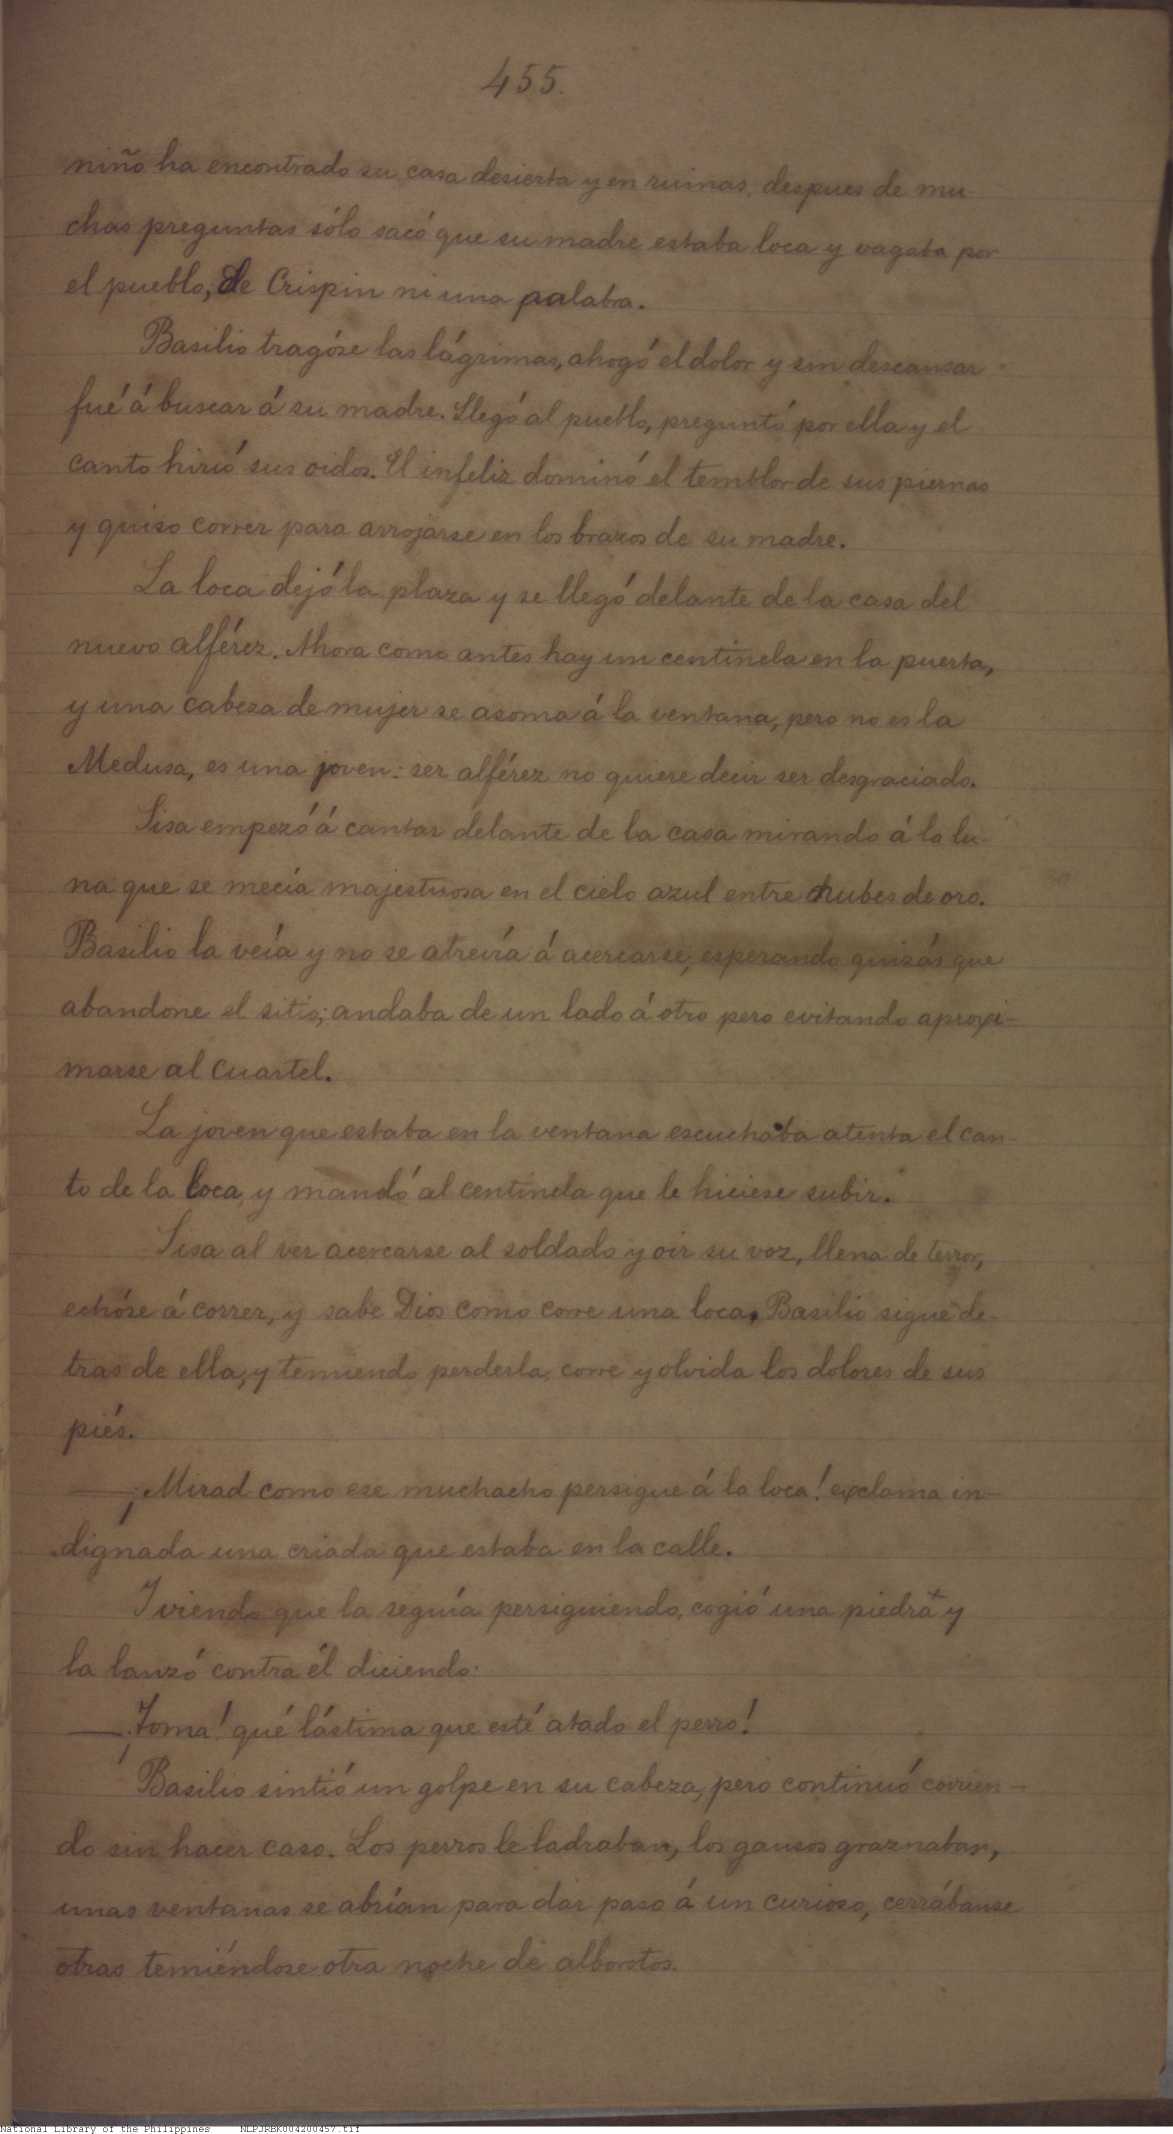 455.
niño ha encontrado su casa desierta y en ruinas, despues de mu-
chas preguntas sólo sacó que su madre estaba loca y vagaba por
el pueblo, de Crispin ni una palabra.
Basilio tragóse las lágrimas, ahogó el dolor y sin descansar
fué á buscar á su madre. Llegó al pueblo, preguntó por ella y el
canto hirió sus oidos. El infeliz dominó el temblor de sus piernas
y quiso correr para arrojarse en los brazos de su madre.
La loca dejó la plaza y se llegó delante de la casa del
nuevo alférez. Ahora como antes hay un centinela en la puerta,
y una cabeza de mujer se asoma á la ventana, pero no es la
Medusa, es una joven: ser alférez no quiere decir ser desgraciado.
Sisa empezó á cantar delante de la casa mirando á la lu-
na que se mecía majestuosa en el cielo azul entre nubes de oro.
Basilio la veía y no se atrevía á acercarse, esperando quizás que
abandone el sitio; andaba de un lado á otro pero evitando aproxi-
marse al cuartel.
La joven que estaba en la ventana escuchaba atenta el can-
to de la loca, y mandó al centinela que le hiciese subir.
Sisa al ver acercarse al soldado y oir su voz, llena de terror,
echóse á correr, y sabe Dios como corre una loca. Basilio sigue de-
tras de ella, y temiendo perderla, corre y olvida los dolores de sus
piés.
—¡Mirad como ese muchacho persigue á la loca! exclama in-
dignada una criada que estaba en la calle.
Y viendo que la seguía persiguiendo, cogió una piedra y
la lanzó contra él diciendo:
—¡Toma! qué lástima que esté atado el perro!
Basilio sintió un golpe en su cabeza, pero continuó corrien-
do sin hacer caso. Los perros le ladraban, los gansos graznaban,
unas ventanas se abrían para dar paso á un curioso, cerrábanse
otras temiéndose otra noche de alborotos.
National Library of the Philippines NLPJRBK004200457.tif